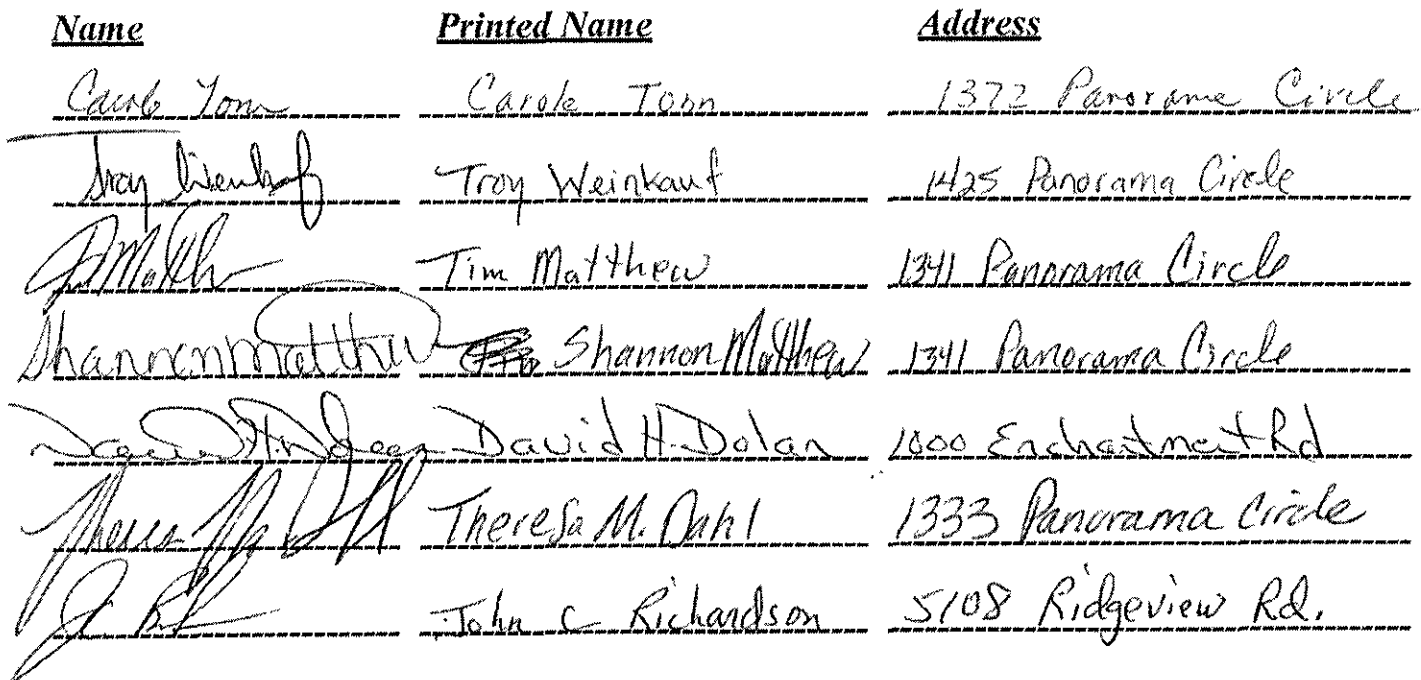 Name Printed Name Address
Carole Tonn Carole Tonn 1372 Panorama Circle
Troy Weinkauf Troy Weinkauf 1425 Panorama Circle
Tim Matthew 1341 Panorama Circle
Shannon Matthew Shannon Matthew 1341 Panorama Circle
David H. Dolan David H. Dolan 1000 Enchantment Rd
Theresa M. Dahl 1333 Panorama Circle
John C Richardson 5108 Ridgeview Rd.